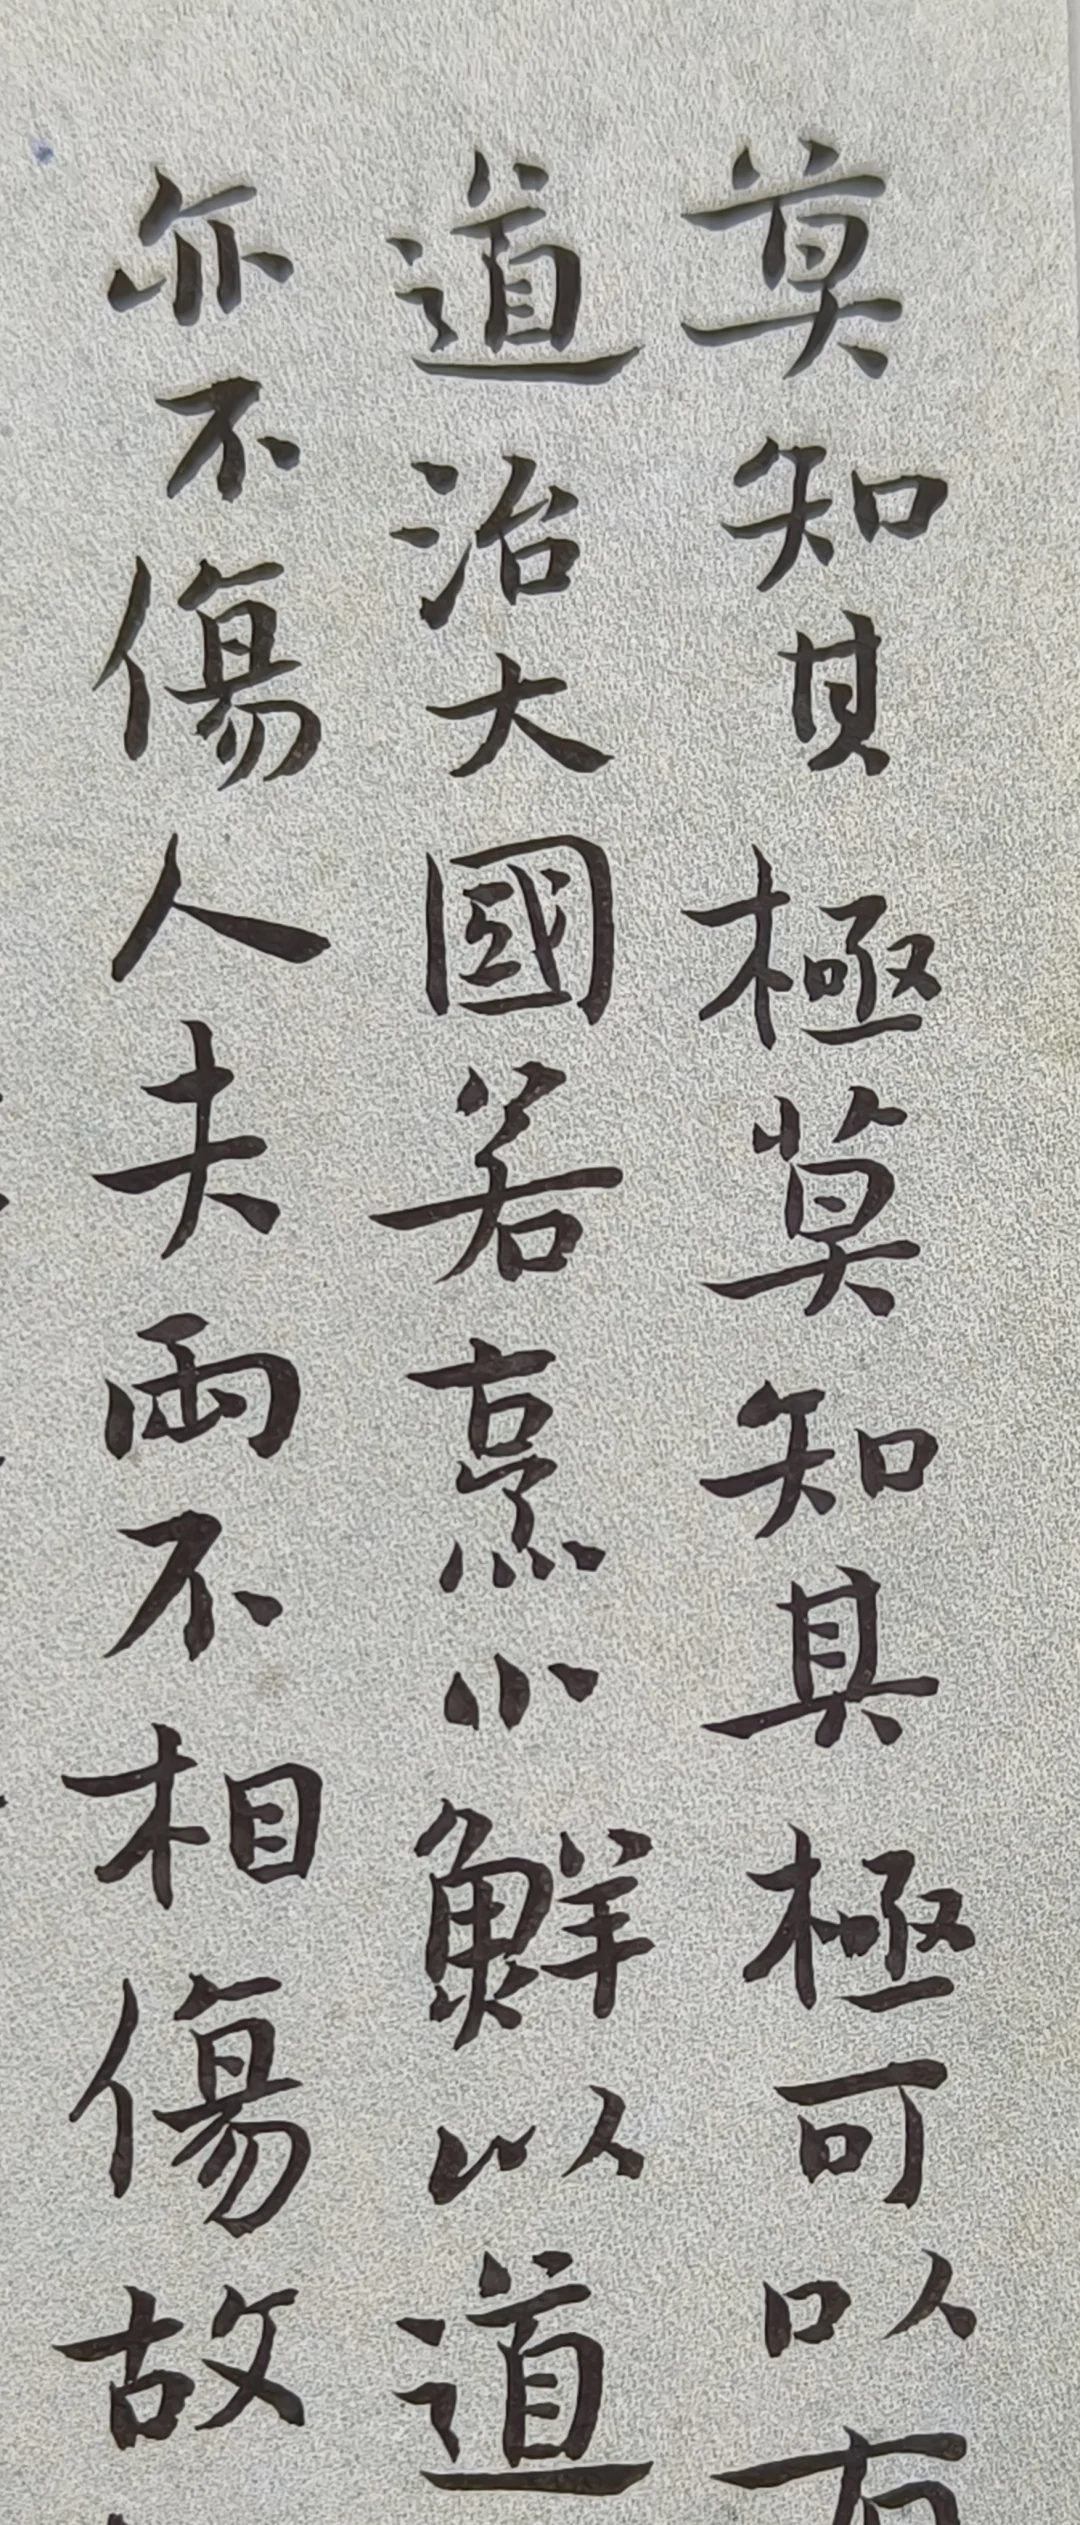 莫知其極莫知其極可以有
道治大國若烹小鮮以道
亦不傷人夫兩不相傷故